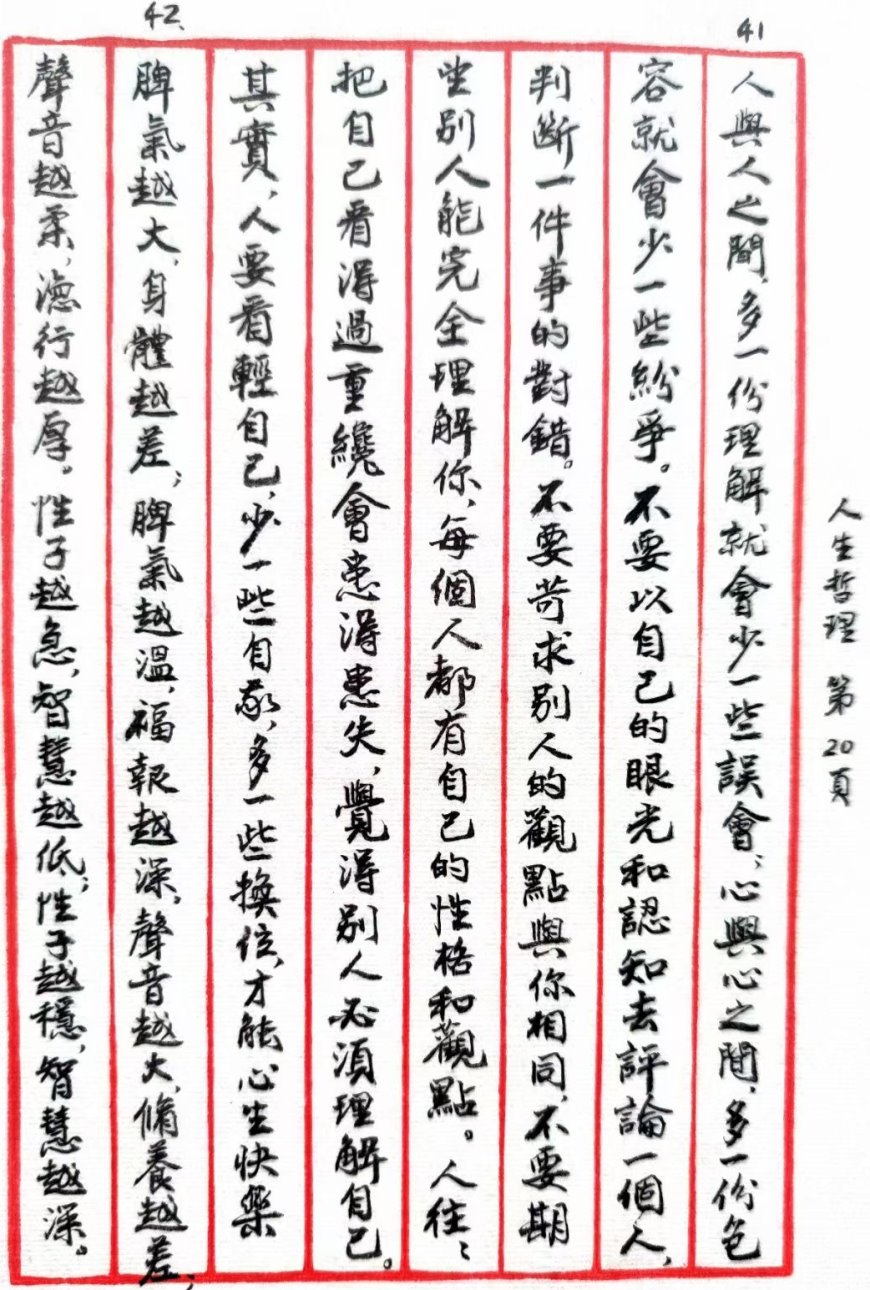 人生哲理 第20頁
41
人與人之間，多一份理解就會少一些誤會，心與心之間，多一份包
容就會少一些紛爭。不要以自己的眼光和認知去評論一個人，
判斷一件事的對錯。不要苛求別人的觀點與你相同，不要期
望別人能完全理解你，每個人都有自己的性格和觀點。人往々
把自己看得過重纔會患得患失，覺得別人必須理解自己。
其實，人要看輕自己，少一些自我，多一些換位，才能心生快樂
42
脾氣越大，身體越差；脾氣越溫，福報越深，聲音越大，脩養越差；
聲音越柔，德行越厚。性子越急，智慧越低；性子越穩，智慧越深。